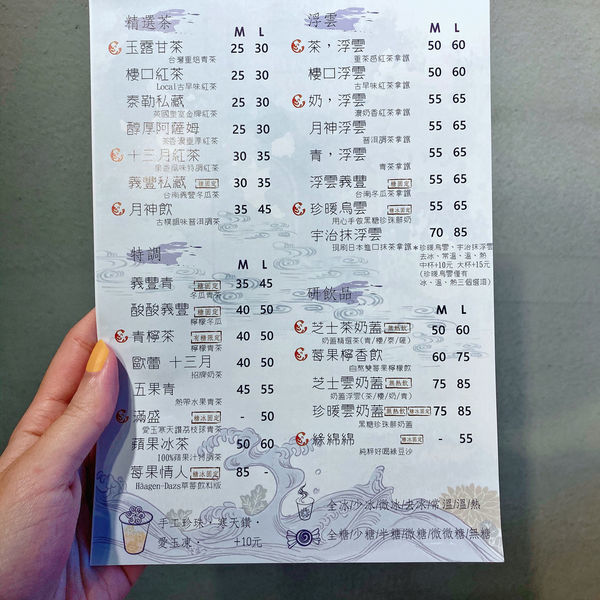 精選茶 M L
玉露甘茶 25 30
台灣重焙青茶
樓口紅茶 25 30
Local古早味紅茶
泰勒私藏 25 30
英國皇室金牌紅茶
醇厚阿薩姆 25 30
茶香濃重厚紅茶
十三月紅茶 30 35
果香風味特調紅茶
義豐私藏 糖固定 30 35
台南義豐冬瓜茶
月神飲 35 45
古樸韻味普洱調茶
特調 M L
義豐青 糖固定 35 45
冬瓜青茶
酸酸義豐 糖固定 40 50
檸檬冬瓜
青檸茶 40 50
檸檬青茶
歐蕾 十三月 40 50
招牌奶茶
五果青 45 55
熱帶水果青茶
滿盛 糖冰固定 - 50
愛玉寒天鑽荔枝球青茶
蘋果冰茶 50 60
100%蘋果汁特調茶
莓果情人 糖冰固定 85 -
Häagen-Dazs草莓飲料版
手工珍珠、寒天鑽、
愛玉凍、 +10元
浮雲 M L
茶，浮雲 50 60
重茶感紅茶拿鐵
樓口浮雲 50 60
古早味紅茶拿鐵
奶，浮雲 55 65
濃奶香紅茶拿鐵
月神浮雲 55 65
普洱調茶拿鐵
青，浮雲 55 65
青茶拿鐵
浮雲義豐 糖固定 55 65
台南冬瓜拿鐵
珍暖烏雲 糖冰固定 55 65
用心手做黑糖珍珠鮮奶
宇治抹浮雲 70 85
現刷日本進口抹茶拿鐵
*珍暖烏雲、宇治抹浮雲
去冰、常溫、溫、熱
中杯+10元 大杯+15元
(珍暖烏雲僅有
冰、溫、熱三個選項)
研飲品 M L
芝士茶奶蓋 無熱飲 50 60
奶蓋精選茶(青/樓/泰/薩)
莓果檸香飲 60 75
自熬雙莓果檸檬飲
芝士雲奶蓋 無熱飲 75 85
奶蓋浮雲(茶/樓/奶/青)
珍暖雲奶蓋 無熱飲 糖冰固定 75 85
黑糖珍珠鮮奶蓋
綠綿綿 糖冰固定 - 55
純粹好喝綠豆沙
全冰/少冰/微冰/去冰/常溫/溫/熱
全糖/少糖/半糖/微糖/微微糖/無糖